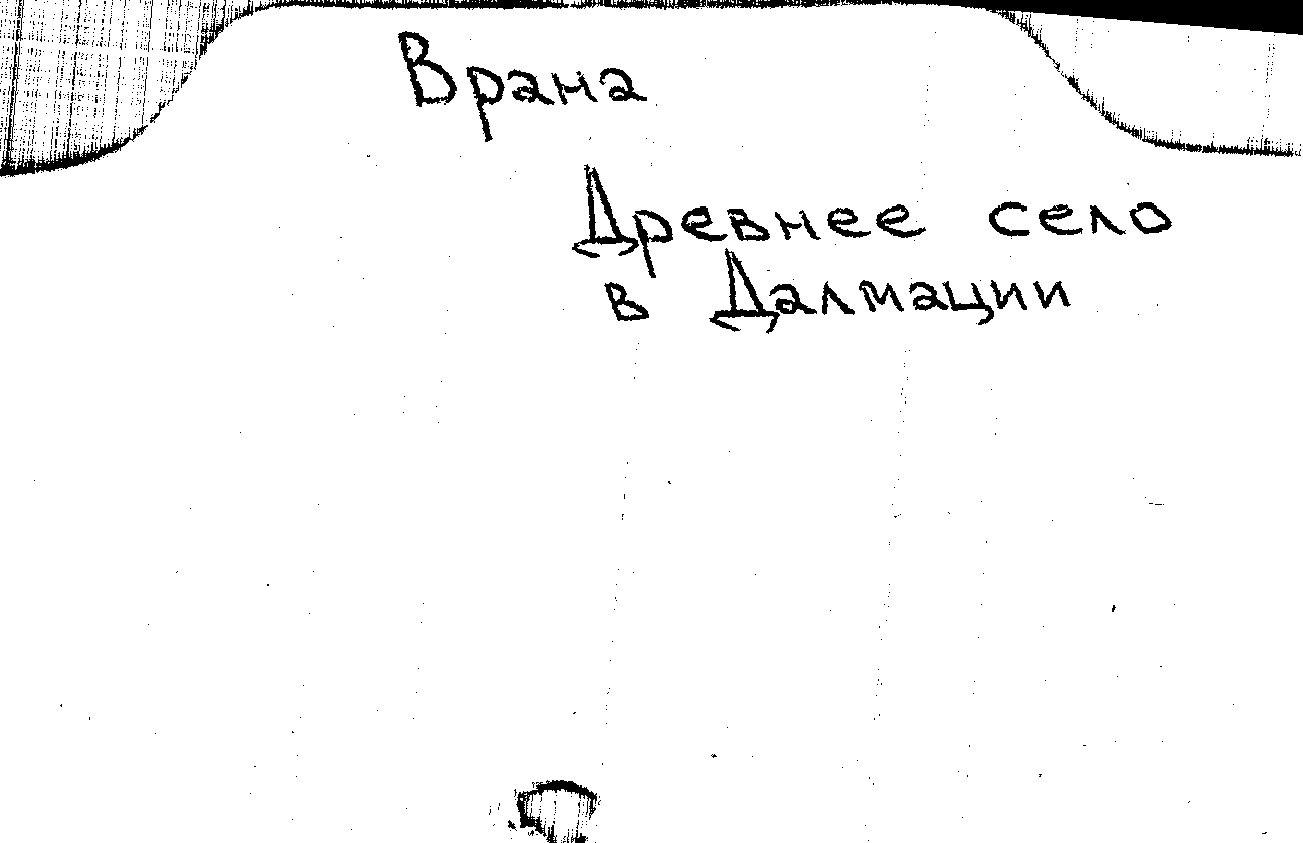 Врана
Древнее село
в Далмации